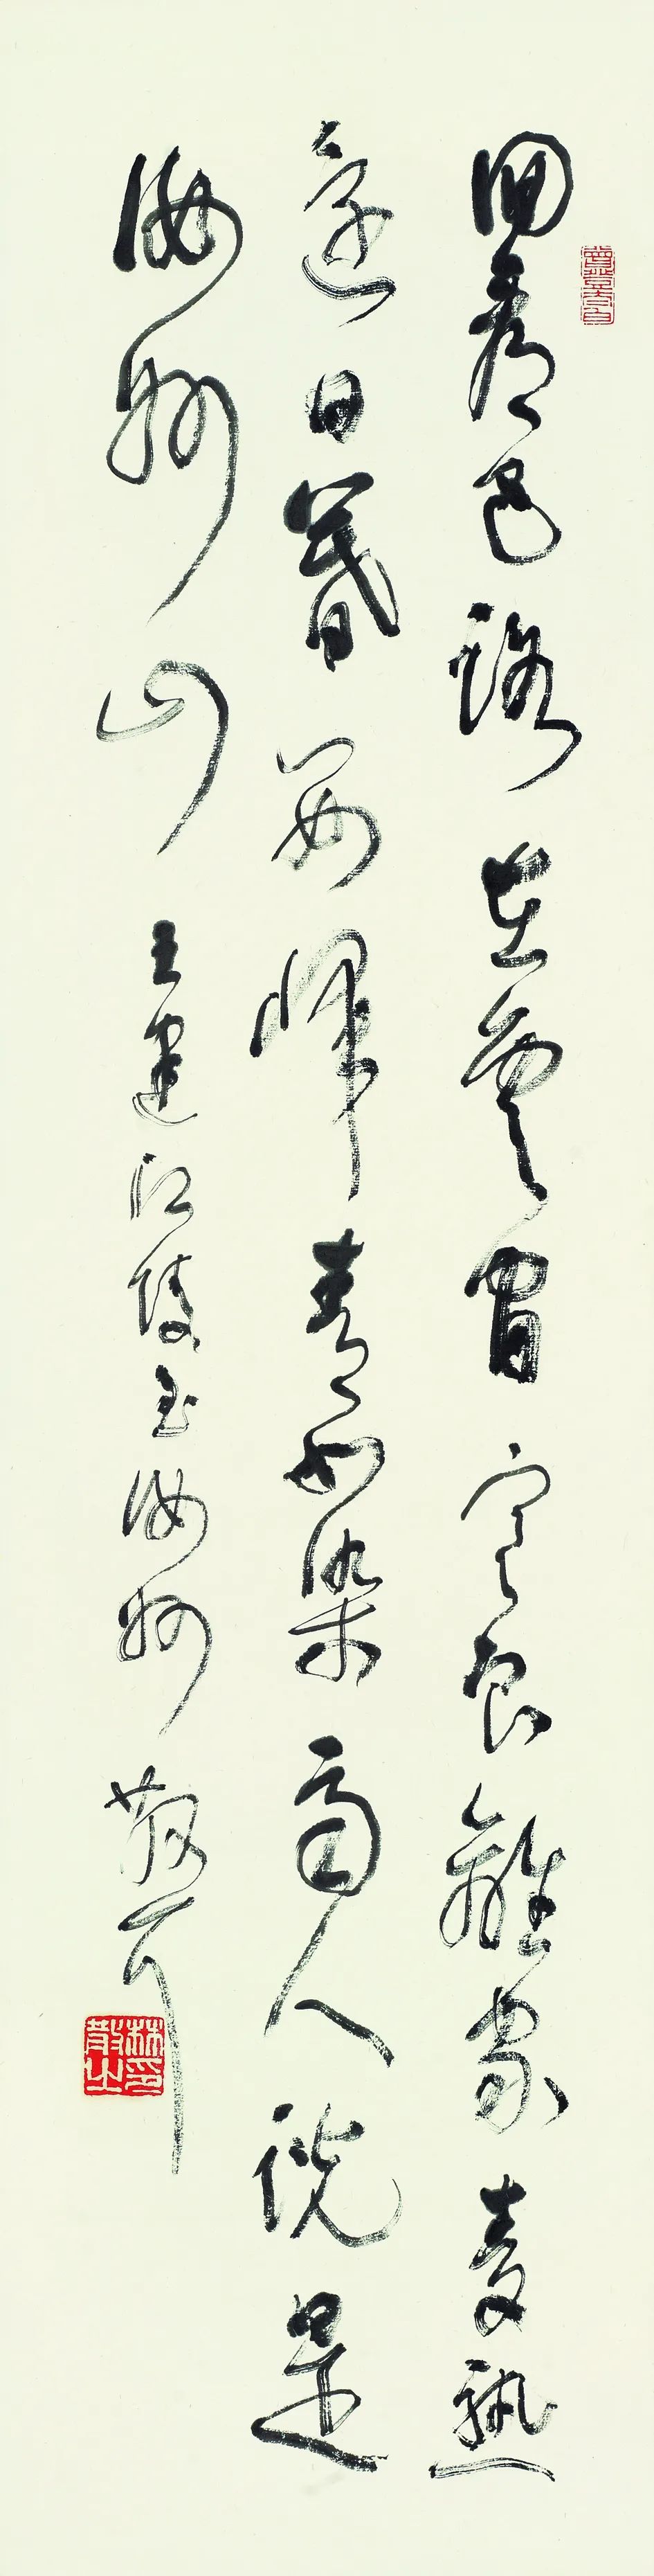 回看巴路在雲間寒食離家麥熟
還日暮數峰青如染商人説是
汝州山 王建江陵至汝州 散耳
林散之印